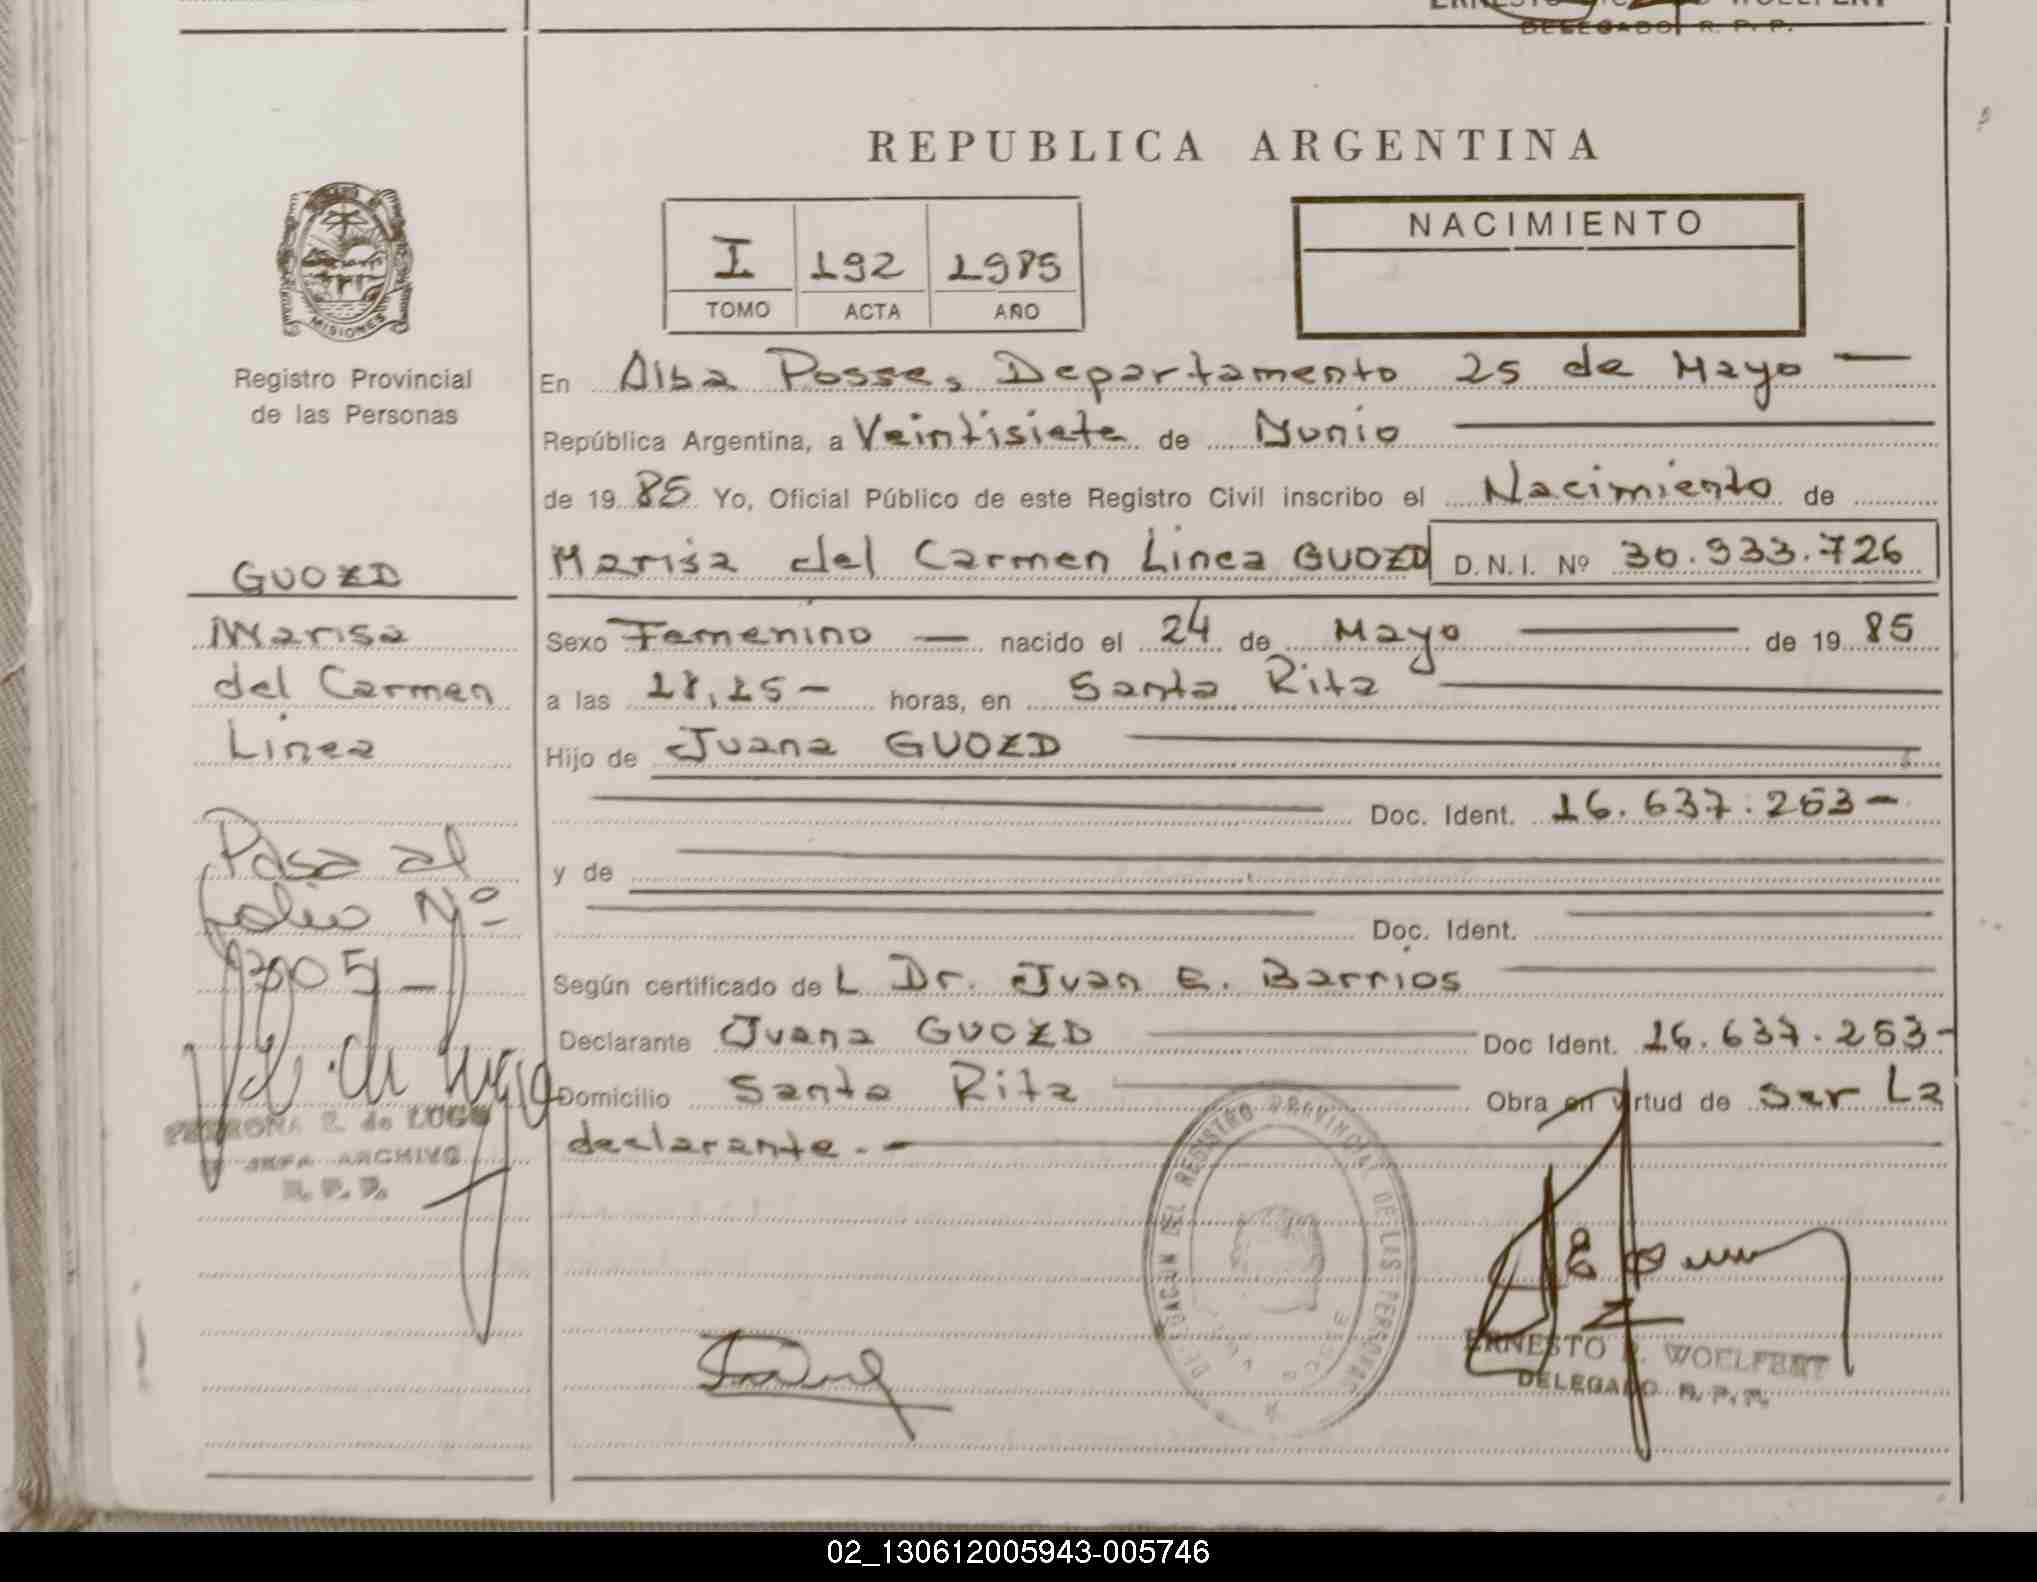 DELEGADO R. P. P.
REPUBLICA ARGENTINA
NACIMIENTO
I 192 1985
TOMO ACTA AÑO
MISIONES
Registro Provincial
de las Personas
En Alba Posse, Departamento 25 de Mayo —
República Argentina, a Veintisiete de Junio
de 19 85 Yo, Oficial Público de este Registro Civil inscribo el Nacimiento de
Marisa del Carmen Linea GUOZD D.N.I. Nº 30.933.726
GUOZD
Marisa
del Carmen
Linea
Sexo Femenino — nacido el 24 de Mayo — de 19 85
a las 18,15 - horas, en Santa Rita
Hijo de Juana GUOZD
Doc. Ident. 16.637.253 -
y de
Doc. Ident.
Pasa al
folio Nº
Según certificado de L Dr. Juan E. Barrios
Declarante Juana GUOZD Doc Ident. 16.637.253 -
Domicilio Santa Rita Obra en virtud de ser La
declarante. -
PETRONA E. de LUGO
JEFA ARCHIVO
R. P. P.
DELEGACION DEL REGISTRO PROVINCIAL DE LAS PERSONAS
ALBA POSSE
ERNESTO R. WOELFERT
DELEGADO R. P. P.
02_130612005943-005746